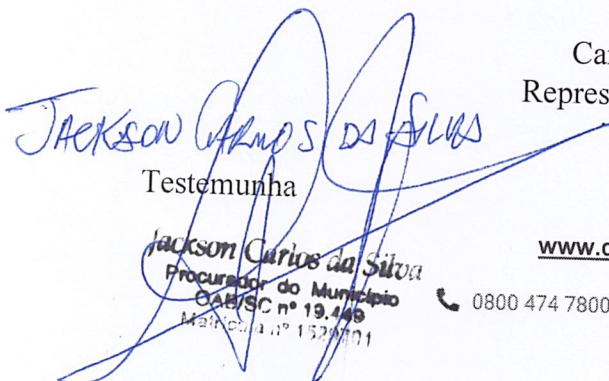 Car
Repres
JACKSON CARLOS DA SILVA
Testemunha
Jackson Carlos da Silva
Procurador do Município
OAB/SC nº 19.449
Matrícula nº
www.c
0800 474 7800